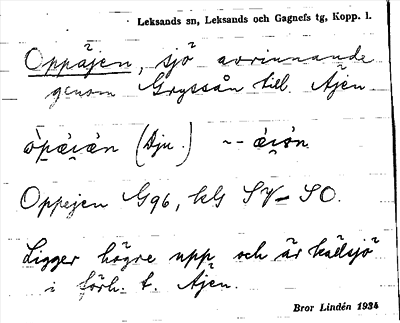 Leksands sn, Leksands och Gagnefs tg, Kopp. l.
Oppäjen, sjö avrinnande
genom Gryssån till Äjen.
(Dju.)
Oppejen G96, kG SV–SO.
Ligger högre upp och är källsjö
i förh. t. Äjen.
Bror Lindén 1934